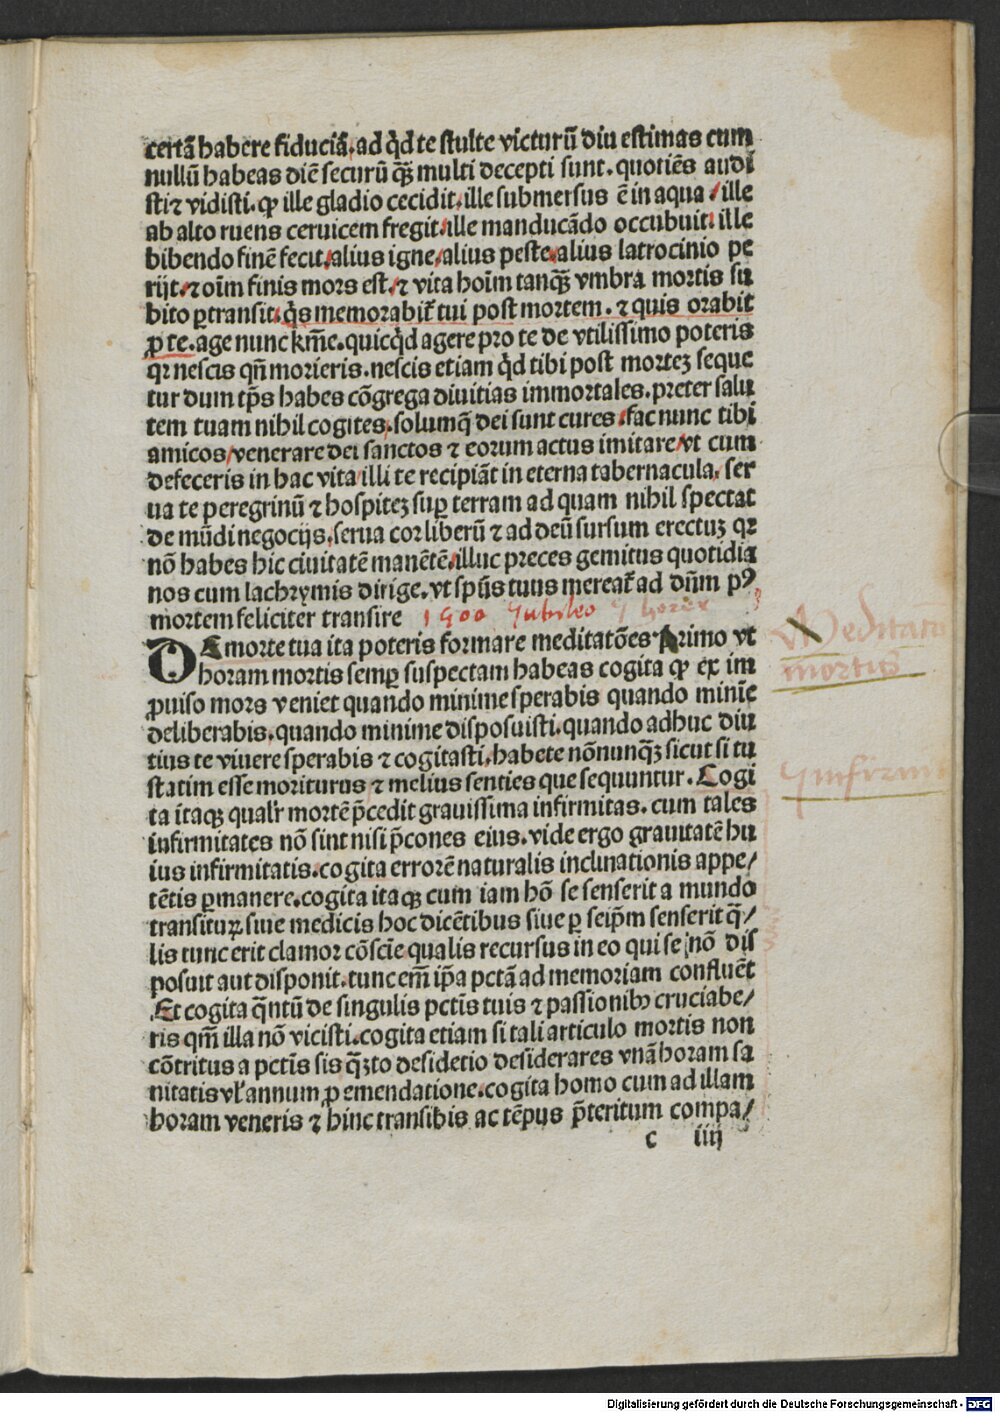 certā habere fiduciā. ad qͥd te stulte victurū diu estimas cum
nullū habeas diē securū qȝ̄ multi decepti sunt. quotiēs audi
sti ⁊ vidisti. ꝙ ille gladio cecidit. ille submersus ē in aqua / ille
ab alto ruens ceruicem fregit. ille manducādo occubuit. ille
bibendo finē fecit. alius igne / alius peste. alius latrocinio pe
rijt. ⁊ oīm finis mors est. ⁊ vita hoīm tanqȝ̄ vmbra mortis su
bito ꝑtransit. qͥs memorabit᷑ tui post mortem. ⁊ quis orabit
ꝓ te. age nunc kr̄me. quicqͥd agere pro te de vtilissimo poteris
qꝛ nescis qn̄ morieris. nescis etiam qͥd tibi post mortez seque
tur dum tp̄s habes cōgrega diuitias immortales. preter salu
tem tuam nihil cogites. solumq̄ dei sunt cures. fac nunc tibi
amicos / venerare dei sanctos ⁊ eorum actus imitare / vt cum
defeceris in hac vita illi te recipiāt in eterna tabernacula. ser
ua te peregrinū ⁊ hospitez suꝑ terram ad quam nihil spectat
de mūdi negocijs. serua cor liberū ⁊ ad deū sursum erectuz qꝛ
nō habes hic ciuitatē manētē. illuc preces gemitus quotidia
nos cum lachrymis dirige. vt sp̄us tuus mereat᷑ ad dn̄m pꝰ
mortem feliciter transire 1500 Jubileo
DE morte tua ita poteris formare meditatōes Primo vt
horam mortis semꝑ suspectam habeas cogita ꝙ ex im
ꝓuiso mors veniet quando minime sperabis quando minīe
deliberabis. quando minime disposuisti. quando adhuc diu
tius te viuere sperabis ⁊ cogitasti. habete nōnunqȝ sicut si tu
statim esse moriturus ⁊ melius senties que sequuntur. Cogi
ta itaqȝ qualr̄ mortē p̄cedit grauissima infirmitas. cum tales
infirmitates nō sint nisi p̄cones eius. vide ergo grauitatē hu
ius infirmitatis. cogita errorē naturalis inclinationis appe/
tētis ꝑmanere. cogita itaqȝ cum iam hō se senserit a mundo
transituꝝ siue medicis hoc dicētibus siue ꝑ seip̄m senserit q̄/
lis tunc erit clamor cōscīe qualis recursus in eo qui se nō dis
posuit aut disponit. tunc em̄ ip̄a pctā ad memoriam confluēt
Et cogita q̄ntū de singulis pctīs tuis ⁊ passionibꝰ cruciabe/
ris qm̄ illa nō vicisti. cogita etiam si tali articulo mortis non
cōtritus a pctīs sis qȝ̄to desidetio desiderares vnā horam sa
nitatis vl̓ annum ꝓ emendatione. cogita homo cum ad illam
horam veneris ⁊ hinc transibis ac tēpus p̄teritum compa/
c iiij
Meditatio
mortis
Infirmi
Digitalisierung gefördert durch die Deutsche Forschungsgemeinschaft - DFG